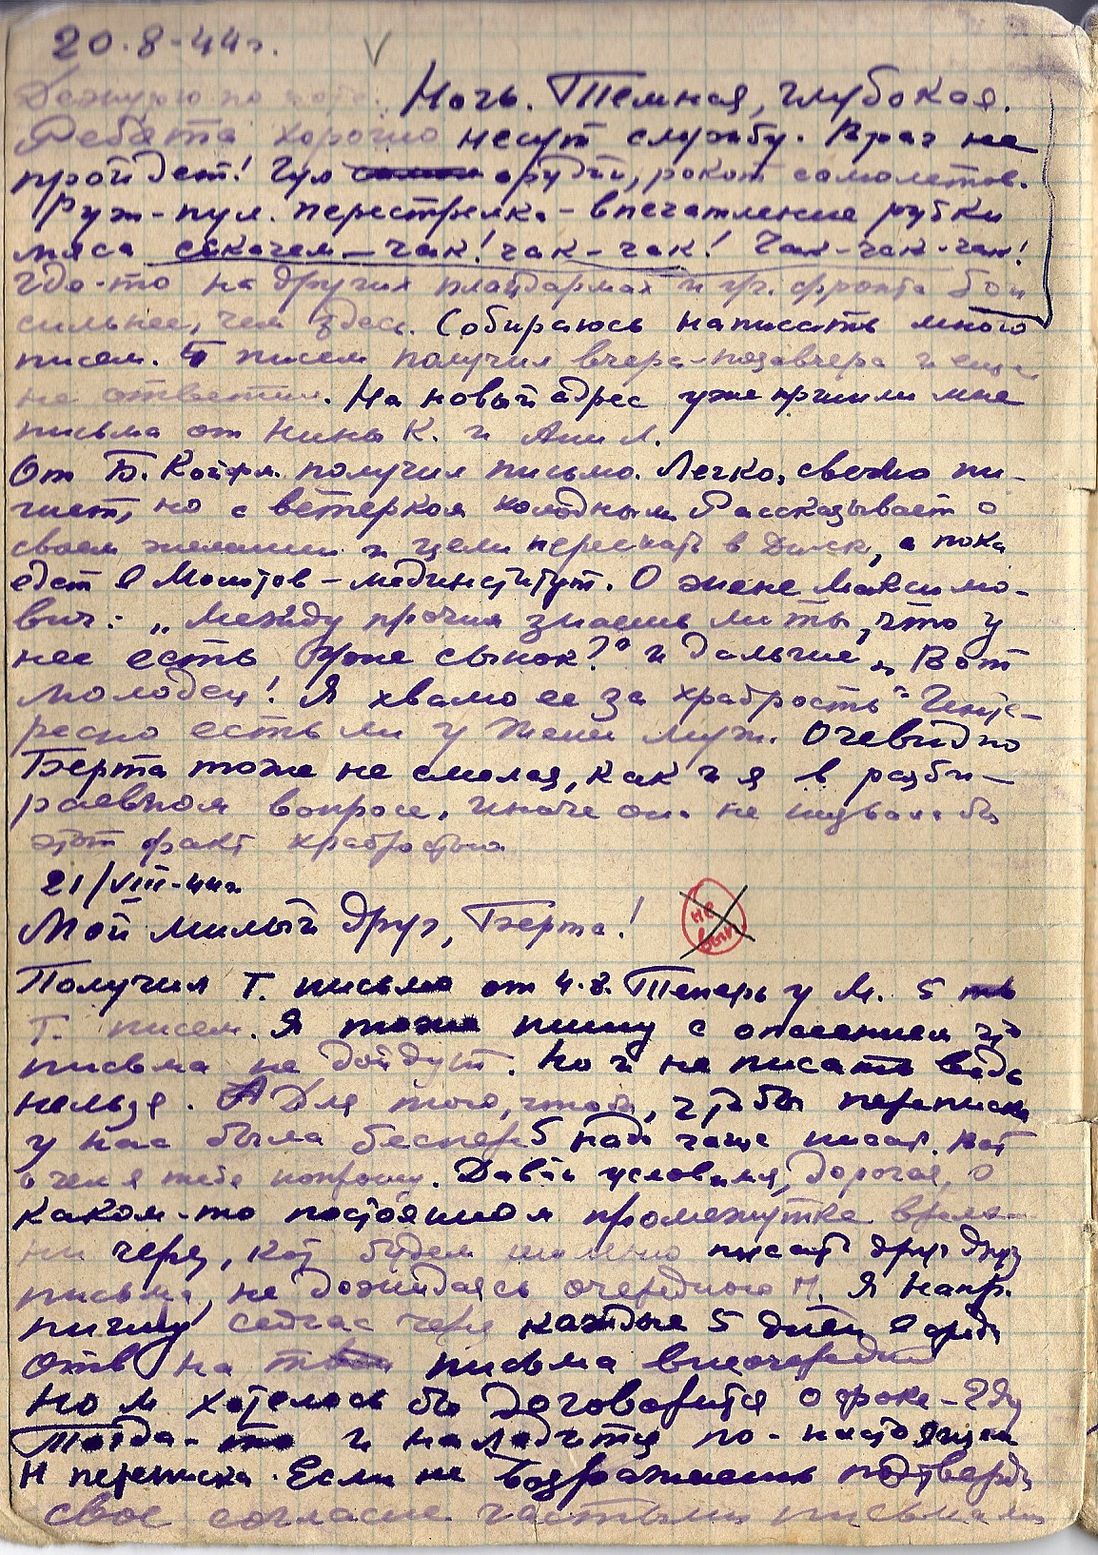 20.8-44г.
Дежурю по роте. Ночь. Темная, глубокая.
Ребята хорошо несут службу. Враг не
пройдет! Гул орудий, рокот самолетов.
Руж-пул. перестрелка - впечатление рубки
мяса секачем - чак! чак-чак! Чак-чак-чак!
Где-то на других плацдармах и уч. фронта бои
сильнее, чем здесь. Собираюсь написать много
писем. 5 писем получил вчера-позавчера и еще
не ответил. На новый адрес уже пришли мне
письма от Нины К. и Ани Л.
От Б. Койфм. получил письмо. Легко, свежо пи-
шет, но с ветерком холодным. Рассказывает о
своем желании и цели переехать в , а пока
едет в Молотов - мединститут. О жене Максимо-
вич: „Между прочим знаешь ли ты, что у
нее есть уже сынок?" и дальше „Вот
молодец! Я хвалю ее за храбрость" Инте-
ресно есть ли у Жени муж. Очевидно
Берта тоже не смелая, как и я в разби-
раемом вопросе. Иначе она не назвала бы
этот факт храбростью
21/VIII-44г.
Мой милый друг, Берта!
не
Получил Т. письмо от 4.8. Теперь у м. 5
Т. писем. Я тоже пишу с опасением что
письма не дойдут. Но и не писать ведь
нельзя. Для того, чтобы переписка
у нас была беспер надо чаще писать. Вот
о чем я тебе попрошу. Давай условимся, дорогая, о
каком-то постоянном промежутке време-
ни через, кот будем писать друг другу
письма, не дожидаясь очередного п. Я напр.
пишу сейчас через каждые 5 дней
отв на письма внеочередн
но м хотелось бы договориться о сроке
Тогда и наладится по-настоящем
н переписка. Если не возражаешь подтверди
свое согласие частыми письмами